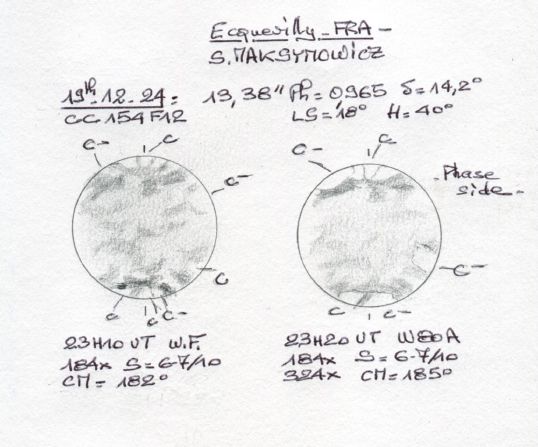 Ecquevilly - FRA -
S. MAKSYMOWICZ
19th-12-24: 13,38" Ph=0,965 δ=14,2°
CC 154 F12 LS=18° H=40°
C- C C- C
C- C C C C C-
Phase side -
C- C C-
23H10 UT W.F.
184x S=6-7/10
CM=182°
23H20 UT W80A
184x S=6-7/10
324x CM=185°